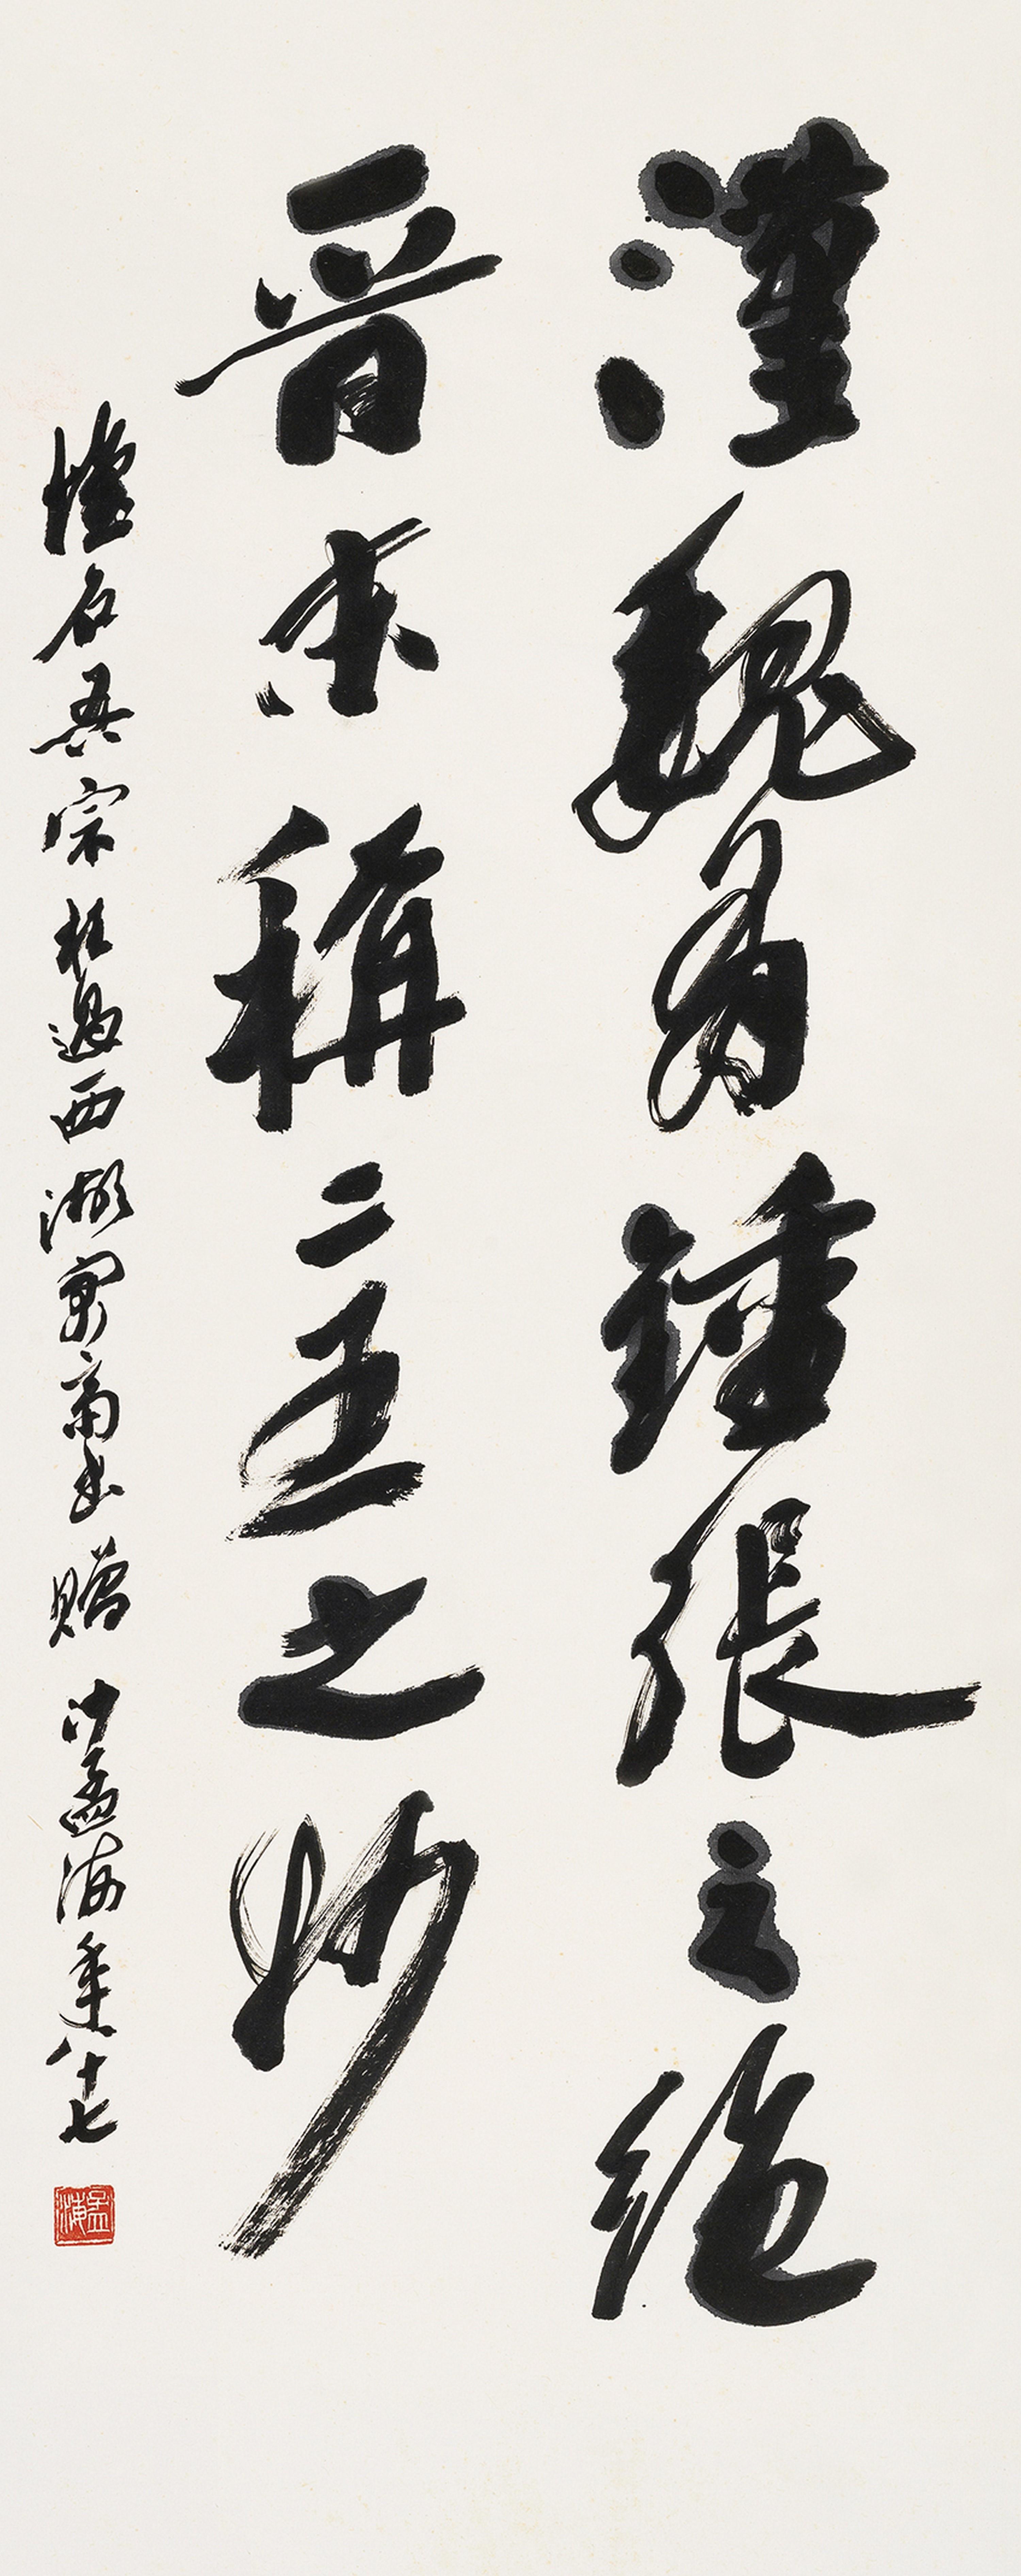 漢魏有鍾張之絕
晉末稱二王之妙
燿名吾宗枉過西湖寓齋出贈 沙孟海年八十七
孟海